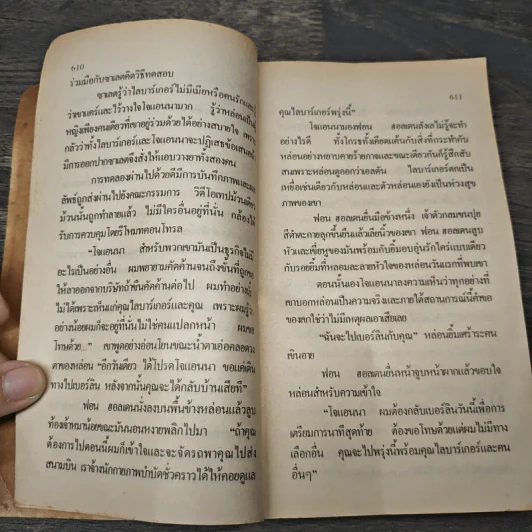 610
ร่วมมือกับซาเลตคิดวิธีทดสอบ
ซาเลตรู้ว่าไลบาร์เกอร์ไม่มีเมียหรือคนรักและรู้
ว่าเขาเคร์และไว้วางใจโจแอนนามาก รู้ว่าหล่อนเป็นผู้
หญิงเพียงคนเดียวที่เขาอยู่ร่วมด้วยได้อย่างสบายใจ เพราะ
กลัวว่าทั้งไลบาร์เกอร์และโจแอนนาจะปฏิเสธข้อเสนอหาก
มีการออกปากซาเลตจึงสั่งให้แอบวางยาทั้งสองคน
การทดลองผ่านไปด้วยดีมีการบันทึกภาพและผล
ลัพธ์ถูกส่งผ่านไปยังคณะกรรมการ วิดีโอเทปม้วนนั้น
ม้วนนั้นถูกทำลายแล้ว ไม่มีใครอื่นอยู่ที่นั่น กล้องได้
รับการควบคุมโดยรีโหมทคอนโทรล
"โจแอนนา สำหรับพวกเขามันเป็นธุรกิจไม่มี
อะไรเป็นอย่างอื่น ผมพยายามคัดค้านจนถึงขั้นที่ถูกขอ
ให้ลาออกจากบริษัทถ้าขืนคัดค้านต่อไป ผมทำอย่างนั้น
ไม่ได้เพราะเห็นแก่คุณไลบาร์เกอร์และคุณ เพราะผมรู้ว่า
อย่างน้อยผมก็จะอยู่ที่นั่นไม่ใช่คนแปลกหน้า ผมขอ
โทษด้วย..." เขาพูดอย่างอ่อนโยนขณะน้ำตาเอ่อคลอดวง
ตาของหล่อน "อีกวันเดียว ได้โปรดโจแอนนา ขอแค่เดิน
ทางไปเบอร์ลิน หลังจากนั้นคุณจะได้กลับบ้านเสียที"
ฟอน ฮอลเดนนั่งลงบนพื้นข้างหล่อนแล้วลูบ
ท้องเจ้าหมาน้อยขณะมันนอนหงายพลิกไปมา "ถ้าคุณ
ต้องการไปตอนนี้ผมก็เข้าใจและจะจัดรถพาคุณไปส่ง
สนามบิน เราจ้างนักกายภาพบำบัดชั่วคราวได้ให้คอยดูแล
611
คุณไลบาร์เกอร์พรุ่งนี้"
โจแอนนามองฟอน ฮอลเดนลังเลไม่รู้จะทำ
อย่างไรดี ทั้งโกรธทั้งเดียดแค้นกับสิ่งที่กระทำกับ
หล่อนอย่างหยาบคายร้ายกาจและขณะเดียวกันก็รู้สึกสับ
สนเพราะหล่อนดูออกว่าเอลตัน ไลบาร์เกอร์ตกเป็น
เหยื่อเช่นเดียวกับหล่อนและตัวหล่อนเองยังเป็นห่วงสุข
ภาพของเขา
ฟอน ฮอลเดนยื่นมือข้างหนึ่ง เจ้าตัวกลมขนปุย
สีดำตะกายลุกขึ้นยืนแล้วเลียนิ้วของเขา ฟอน ฮอลเดนลูบ
หัวและเขี่ยหูของมันพร้อมกับยิ้มอบอุ่นรักใคร่แบบเดียว
กับรอยยิ้มที่หลอมละลายหัวใจของหล่อนวันแรกที่พบเขา
ตอนนั้นเองโจแอนนาลงความเห็นว่าทุกอย่างที่
เขาบอกหล่อนเป็นความจริงและภายใต้สถานการณ์นี้คำขอ
ของเขาใช่ว่าไม่มีเหตุผลเอาเสียเลย
"ฉันจะไปเบอร์ลินกับคุณ" หล่อนยิ้มเศร้าระคน
เขินอาย
ฟอน ฮอลเดนยื่นหน้าจูบหน้าผากแล้วขอบใจ
หล่อนสำหรับความเข้าใจ
"โจแอนนา ผมต้องกลับเบอร์ลินวันนี้เพื่อการ
เตรียมการนาทีสุดท้าย ต้องขอโทษด้วยแต่ผมไม่มีทาง
เลือกอื่น คุณจะไปพรุ่งนี้พร้อมคุณไลบาร์เกอร์และคน
อื่นๆ"